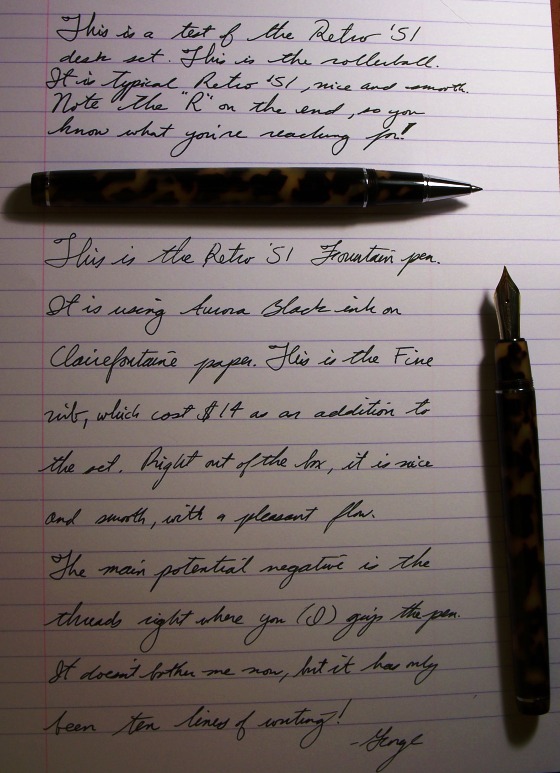 This is a test of the Retro '51
desk set. This is the rollerball.
It is typical Retro '51, nice and smooth.
Note the "R" on the end, so you
know what you're reaching for!
This is the Retro '51 Fountain pen.
It is using Aurora Black ink on
Clairefontaine paper. This is the Fine
nib, which cost $14 as an addition to
the set. Right out of the box, it is nice
and smooth, with a pleasant flow.
The main potential negative is the
threads right where you (I) grip the pen.
It doesn't bother me now, but it has only
been ten lines of writing!
-George